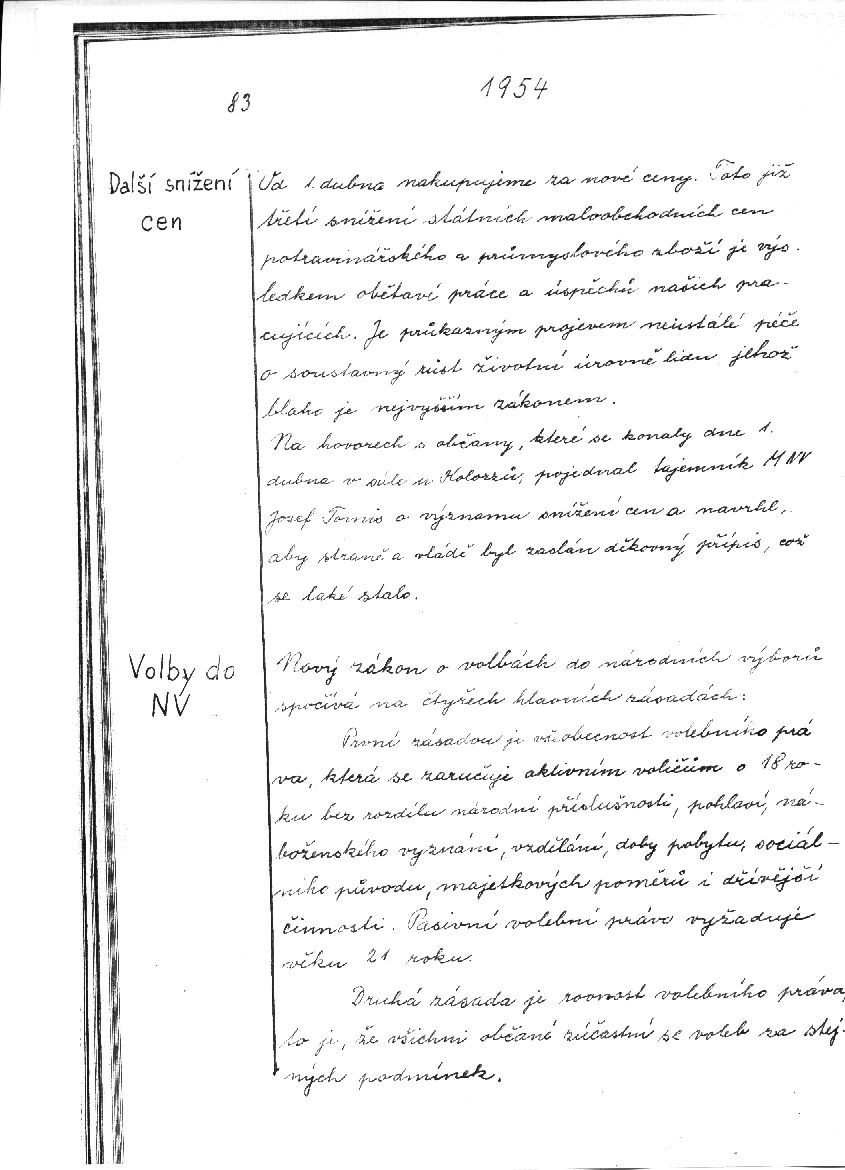 83
1954
Další snížení
cen
Od 1. dubna nakupujeme za nové ceny. Toto již
třetí snížení státních maloobchodních cen
potravinářského a průmyslového zboží je výs-
ledkem obětavé práce a úspěchů našich pra-
cujících. Je průkazným projevem neustálé péče
o soustavný růst životní úrovně lidu jehož
blaho je nejvyšším zákonem.
Na hovorech s občany, které se konaly dne 1.
dubna v sále u Kolorzů, pojednal tajemník MNV
Josef Tomis o významu snížení cen a navrhl,
aby straně a vládě byl zaslán děkovný přípis, což
se také stalo.
Volby do
NV
Nový zákon o volbách do národních výborů
spočívá na čtyřech hlavních zásadách:
První zásadou je všeobecnost volebního prá
va, která se zaručuje aktivním voličům o 18 ro-
ku bez rozdílu národní příslušnosti, pohlaví, ná-
boženského vyznání, vzdělání, doby pobytu, sociál-
ního původu, majetkových poměrů i dřívější
činnosti. Pasivní volební právo vyžaduje
věku 21 roku.
Druhá zásada je rovnost volebního práva,
to je, že všichni občané zúčastní se voleb za stej-
ných podmínek.